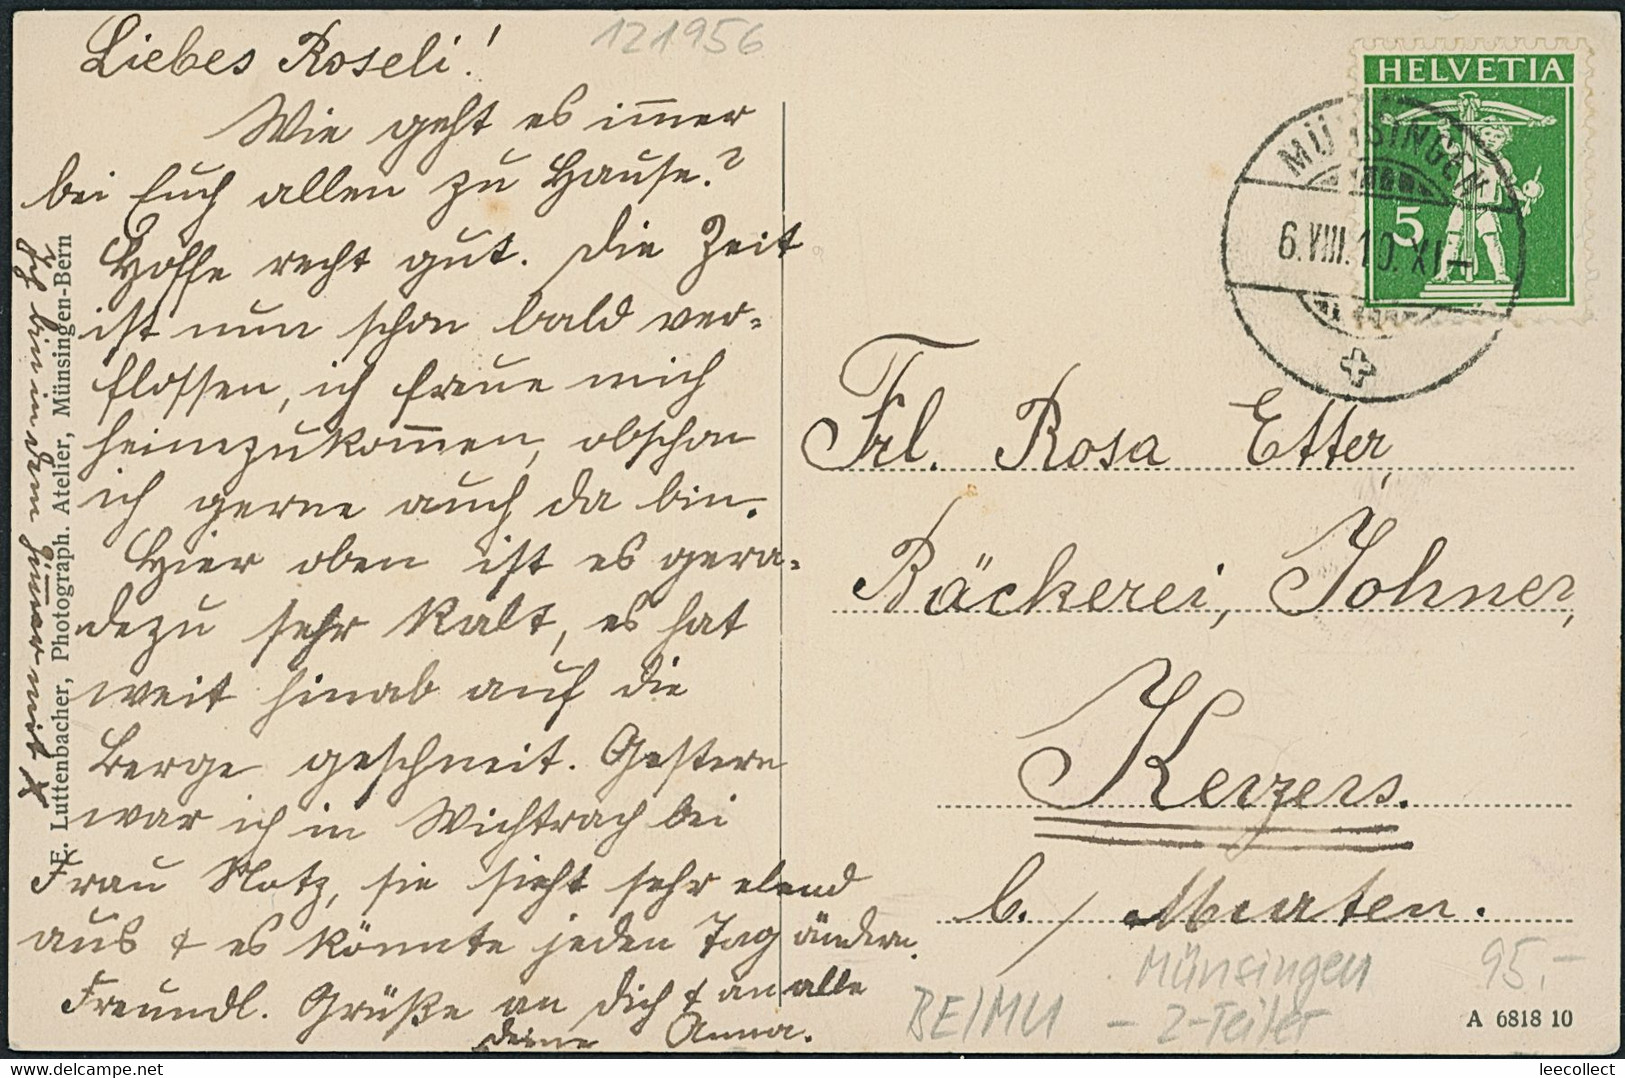 121956
Liebes Roseli!
Wie geht es im̅er
bei Euch allen zu Hause?
Hoffe recht gut. Die Zeit
ist nun schon bald ver=
flossen, ich freue mich
heimzukom̅en, obschon
ich gerne auch da bin.
Hier oben ist es gera=
dezu sehr kalt, es hat
weit hinab auf die
Berge geschneit. Gestern
war ich in Wichtrach bei
Frau Notz, sie sieht sehr elend
aus & es könnte jeden Tag ändern.
Freundl. Grüße an dich & an alle
Deine Anna.
Ich bin in dem Zim̅er mit X
E. Luttenbacher, Photograph. Atelier, Münsingen-Bern
HELVETIA
5
MÜNSINGEN
6.VIII.10. XI–
Frl. Rosa Etter,
Bäckerei, Johner,
Kerzers.
b./ Murten.
Münsingen 95.–
BE/MU – 2-Teiler
A 6818 10
leecollect